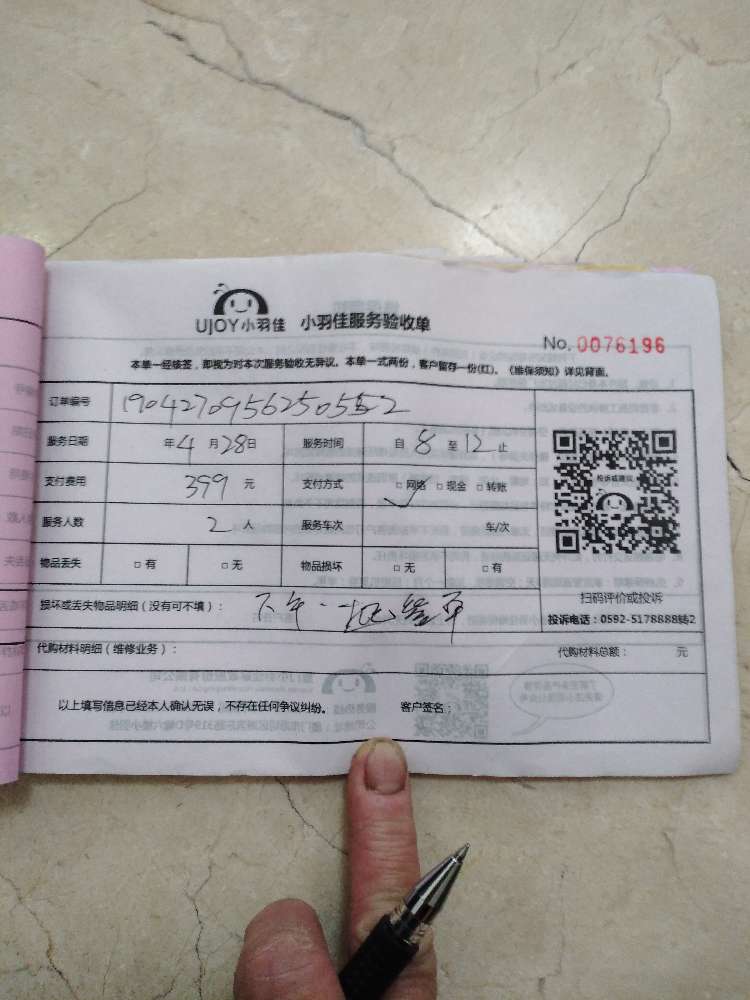 UJOY小羽佳 小羽佳服务验收单
No. 0076196
本单一经核签，即视为对本次服务验收无异议。本单一式两份，客户留存一份(红)。《维保须知》详见背面。
订单编号
服务日期 年 4 月 28 日 服务时间 自 8 至 12 止
支付费用 399 元 支付方式 □ 网络 □ 现金 □ 转账
服务人数 2 人 服务车次 车/次
物品丢失 □ 有 □ 无 物品损坏 □ 无 □ 有
投诉或建议
扫码评价或投诉
投诉电话：0592-5178888转2
损坏或丢失物品明细（没有可不填）： 下午
代购材料明细（维修业务）： 代购材料总额： 元
以上填写信息已经本人确认无误，不存在任何争议纠纷。 客户签名：